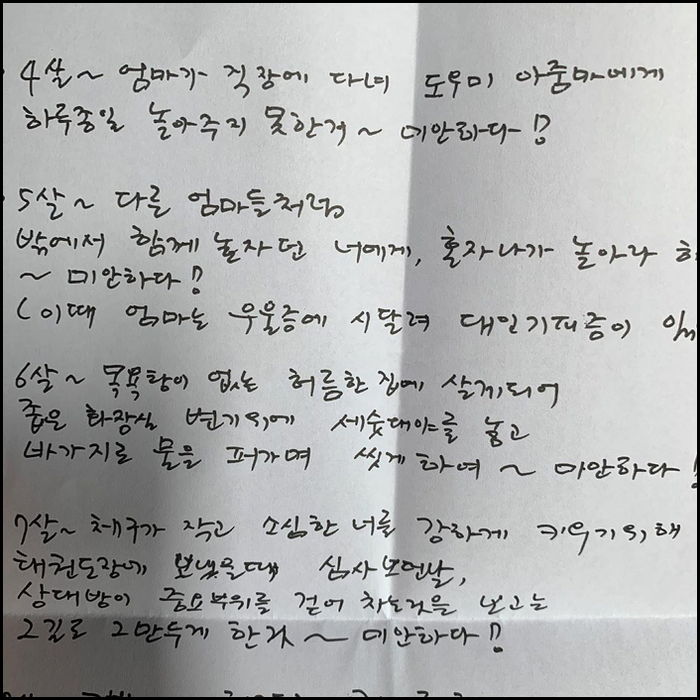 4살~ 엄마가 직장에 다녀 도우미 아줌마에게
하루종일 놀아주지 못한거~ 미안하다!!
5살~ 다른 엄마들처럼
밖에서 함께 놀자던 너에게, 혼자나가 놀아라
~ 미안하다!!
(이때 엄마는 우울증에 시달려 대인기피증이
6살~ 목욕탕이 없는 허름한 집에 살게되어
좁은 화장실 변기위에 세숫대야를 놓고
바가지로 물을 퍼가며 씻게하여 ~ 미안하다!
7살~ 체구가 작고 소심한 너를 강하게 키우기위해
태권도장에 보냈을때 심사보던날,
상대방이 중요부위를 걷어 차는것을 보고는
그길로 그만두게 한것~ 미안하다!!